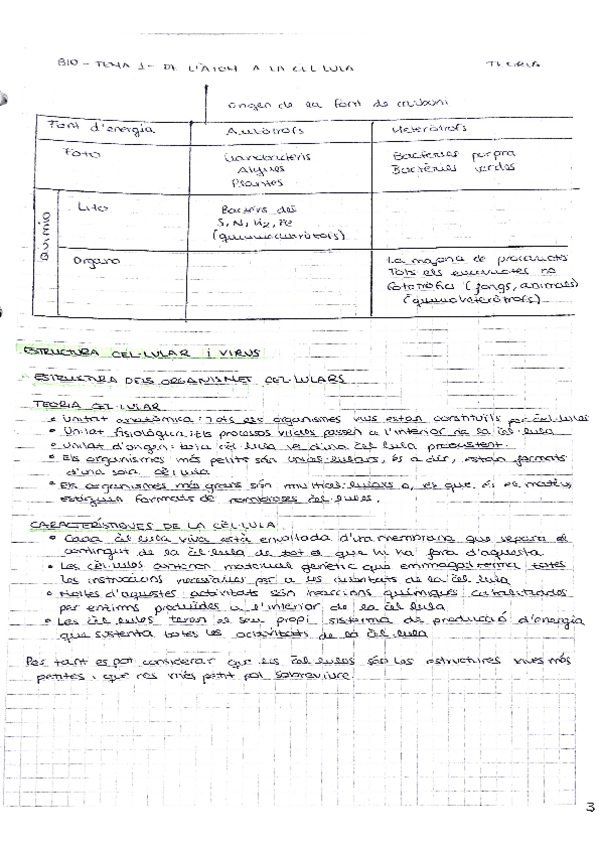 BIO - TEMA 1 - DE L'ÀTOM A LA CÈL·LULA TEORIA
origen de la font de carboni
Font d'energia Autòtrofs Heteròtrofs
Foto Cianobacteris Bactèries porpra
Algues Bactèries verdes
Plantes
Quimio
Lito Bacteris del
S, N, H2, Fe
(quimioautòtrofs)
Organo La majoria de procariotes
Tots els eucariotes no
fototròfics (fongs, animals)
(quimioheteròtrofs)
ESTRUCTURA CEL·LULAR i VIRUS
ESTRUCTURA DELS ORGANISMES CEL·LULARS
TEORIA CEL·LULAR
• Unitat anatòmica: Tots els organismes vius estan constituïts per cèl·lules
• Unitat fisiològica: Els processos vitals passen a l'interior de la cèl·lula
• Unitat d'origen: tota cèl·lula ve d'una cèl·lula preexistent.
• Els organismes més petits són unicel·lulars, és a dir, estan formats
d'una sola cèl·lula
• Els organismes més grans són multicel·lulars o, el que és el mateix,
estiguin formats de nombroses cèl·lules.
CARACTERÍSTIQUES DE LA CÈL·LULA
• Cada cèl·lula viva està envoltada d'una membrana que separa el
contingut de la cèl·lula de tot el que hi ha fora d'aquesta
• Les cèl·lules contenen material genètic que emmagatzema totes
les instruccions necessàries per a les activitats de la cèl·lula
• Moltes d'aquestes activitats són reaccions químiques catalitzades
per enzims produïdes a l'interior de la cèl·lula
• Les cèl·lules tenen el seu propi sistema de producció d'energia
que sustenta totes les activitats de la cèl·lula
Per tant es pot considerar que les cèl·lules són les estructures vives més
petites, que res més petit pot sobreviure.
3